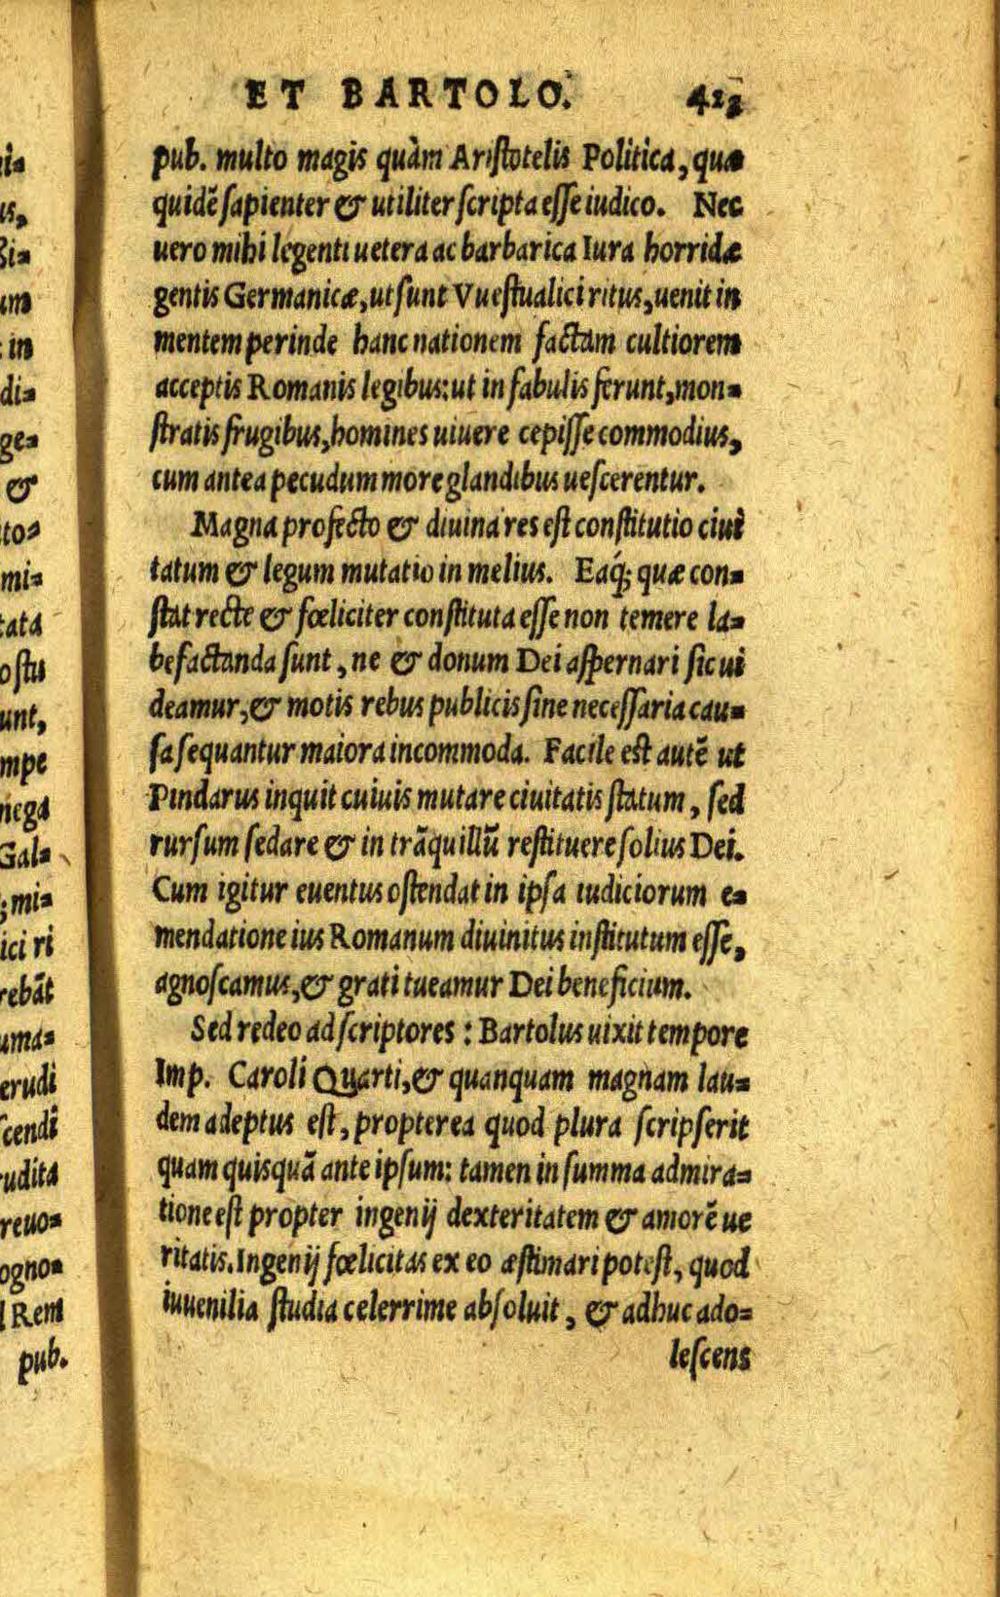 ET BARTOLO. 423
pub. multo magis quàm Aristotelis Politica, quæ
quidẽ sapienter & utiliter scripta esse iudico. Nec
uero mihi legenti uetera ac barbarica Iura horridæ
gentis Germanicæ, ut sunt Vuestualici ritus, uenit in
mentem perinde hanc nationem factam cultiorem
acceptis Romanis legibus: ut in fabulis ferunt, mon-
stratis frugibus, homines uiuere cepisse commodius,
cum antea pecudum more glandibus uescerentur.
Magna profecto & diuina res est constitutio ciui
tatum & legum mutatio in melius. Eaq́; quæ con-
stat recte & fœliciter constituta esse non temere la-
befactanda sunt, ne & donum Dei aspernari sic ui
deamur, & motis rebus publicis sine necessaria cau-
sa sequantur maiora incommoda. Facile est autẽ ut
Pindarus inquit cuiuis mutare ciuitatis statum, sed
rursum sedare & in trãquillũ restituere solius Dei.
Cum igitur euentus ostendat in ipsa iudiciorum e-
mendatione ius Romanum diuinitus institutum esse,
agnoscamus, & grati tueamur Dei beneficium.
Sed redeo ad scriptores: Bartolus uixit tempore
Imp. Caroli Quarti, & quanquam magnam lau-
dem adeptus est, propterea quod plura scripserit
quam quisquã ante ipsum: tamen in summa admira-
tione est propter ingenij dexteritatem & amorẽ ue
ritatis. Ingenij fœlicitas ex eo æstimari potest, quod
iuuenilia studia celerrime absoluit, & adhuc ado-
lescens
us,
in
di-
ge-
&
to-
mi-
tata
unt,
mpe
nega
Gal-
mi-
ici ri
rebãt
uma-
erudi
scendi
rudita
reuo-
ogno-
Rem
pub.